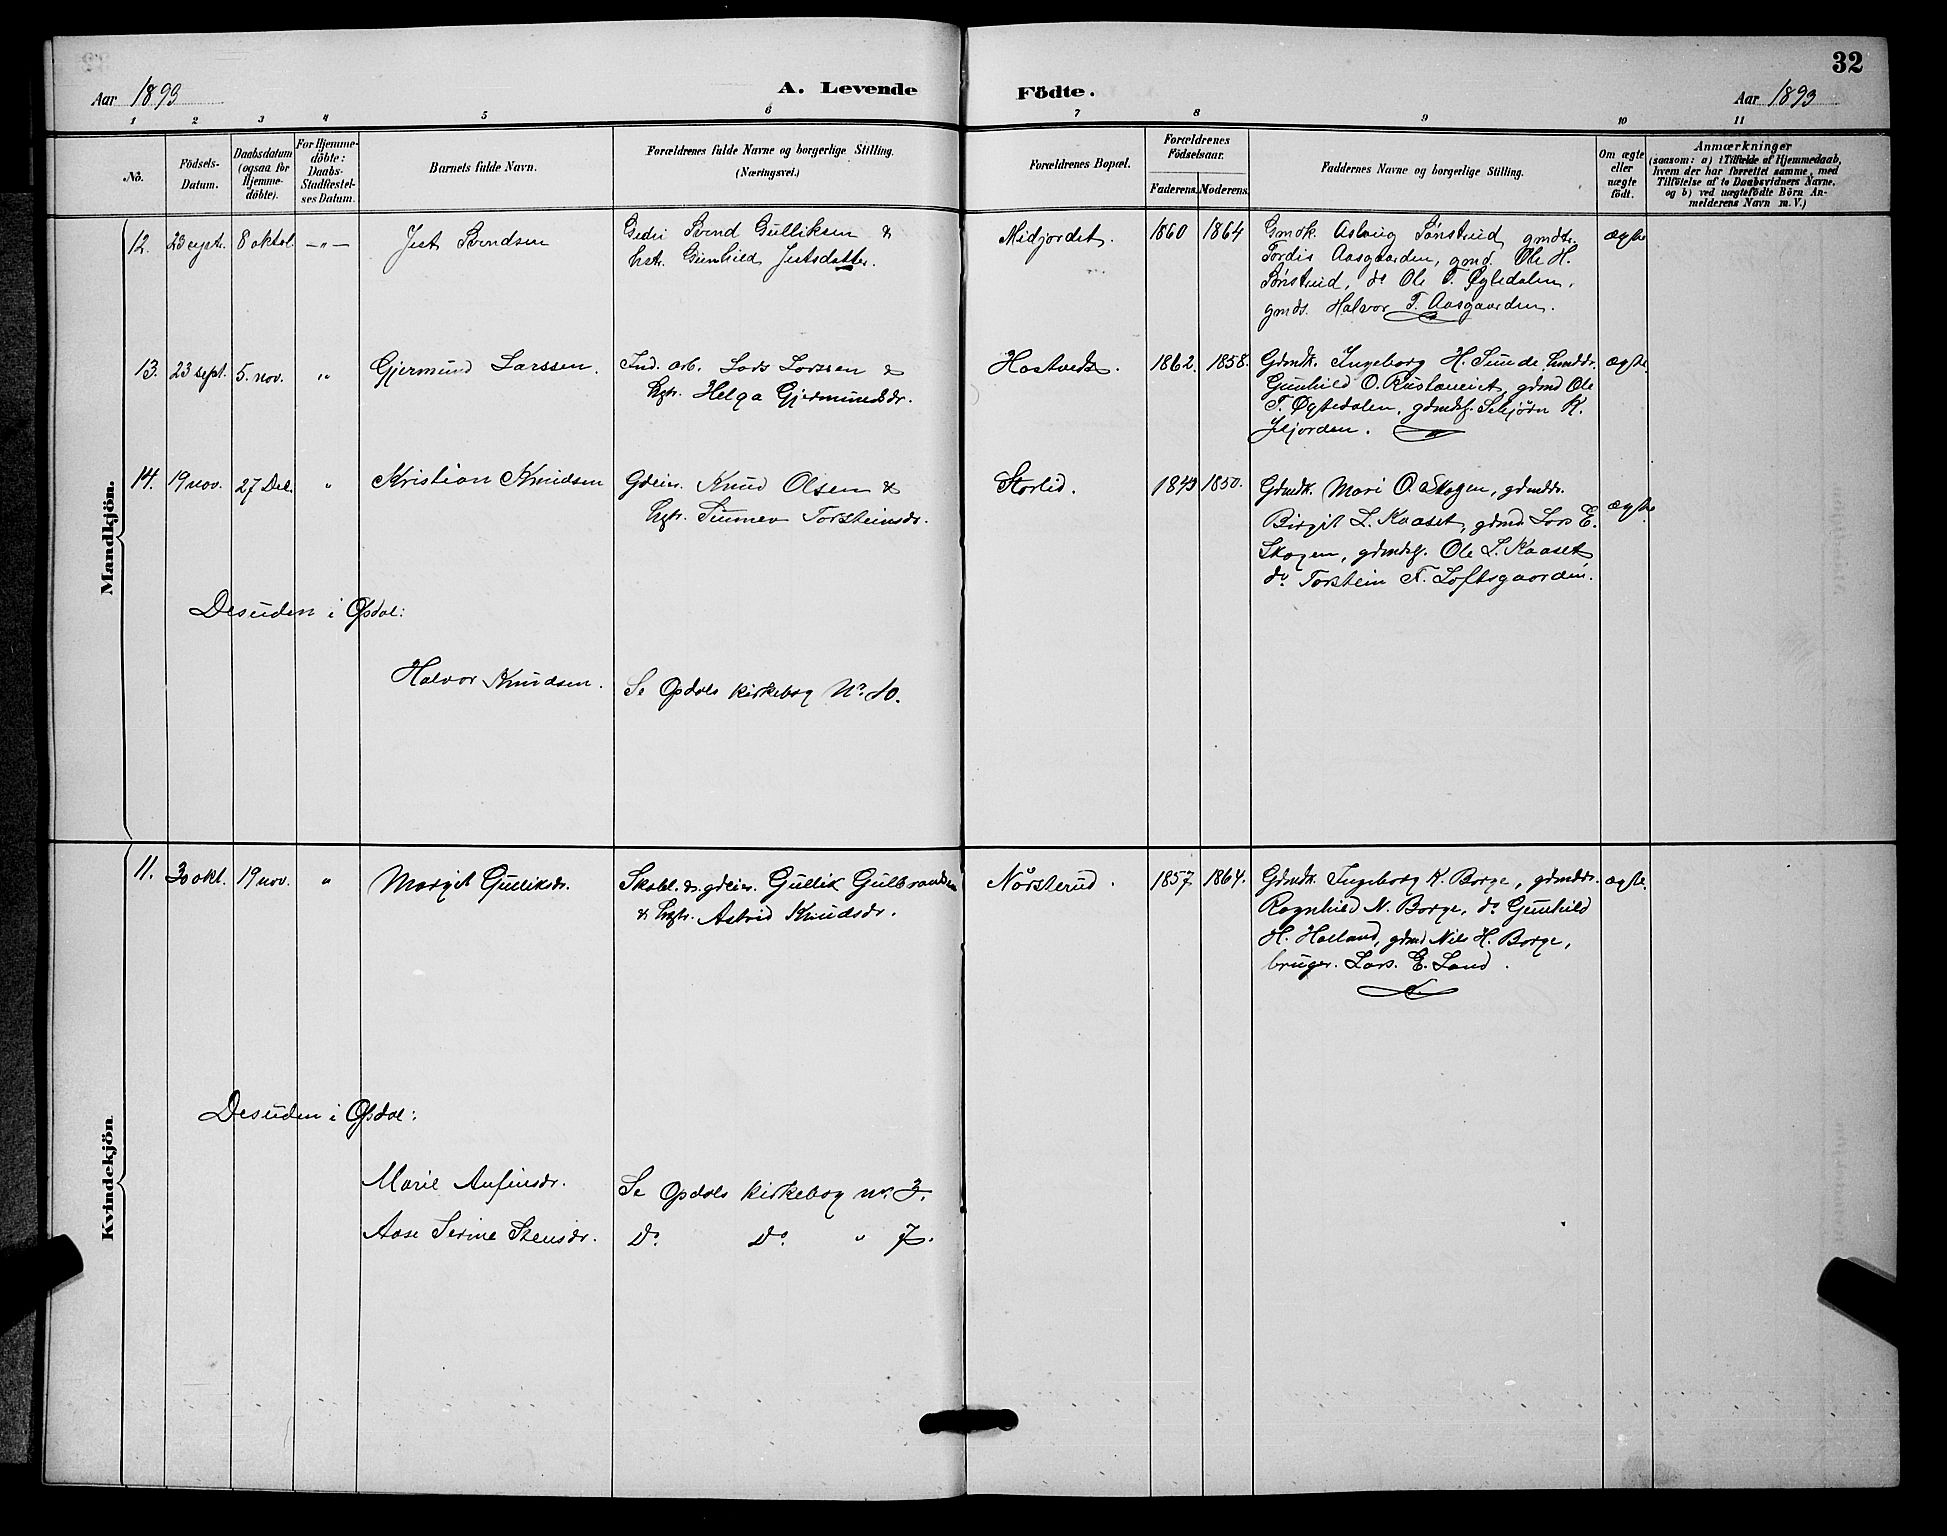 32
Aar 1893
A. Levende
Födte.
Aar 1893
1 2 3 4 5 6 7 8 9 10 11
No.
Födsels-
Datum.
Daabsdatum
(ogsaa for
Hjemme-
döbte).
For Hjemme-
döbte:
Daabs-
Stadfæstel-
ses Datum.
Barnets fulde Navn.
Forældrenes fulde Navne og borgerlige Stilling.
(Næringsvei.)
Forældrenes Bopæl.
Forældrenes
Födselsaar.
Faderens. Moderens.
Faddernes Navne og borgerlige Stilling.
Om ægte
eller
uægte
födt.
Anmærkninger
(saasom: a) i Tilfælde af Hjemmedaab,
hvem der har forrettet samme, med
Tilföielse af to Daabsvidners Navne,
og b) ved uægtefödte Börn An-
melderens Navn m. V.)
Mandkjön.
12. 23 sept. 8 oktob. —"— Jest Svendsen
Svend Gulliksen &
Gunhild Jestsdatter.
Midjordet. 1860 1864
Gmdk. Aslaug Sønstrud, gmdtr.
Tordis Aasgaarden, gmd. Ole H.
Sønstrud, do Ole T. Øgtedalen,
gmds. Halvor T. Aasgaarden.
ægte
13. 23 sept. 5. nov. " Gjermund Larssen.
Ind. arb. Lars Larssen &
Hgtr. Helga Gjermundsdr.
Hostvedt. 1862. 1858.
Gdmdk. Ingeborg H. Sunde,
Gunhild O. Rustaneiet, gdmd Ole
T. Øgtedalen, gdmdsf. Sebjørn K.
Jljorden.
ægte
14. 19 nov. 27 Dec. " Kristian Knudsen
Gdeier. Knud Olsen &
Hgtr. Sunnev Torsteinsdr.
Storlid. 1843 1850.
Gdmdk. Mari O. Skogen, gdmddr.
Birgit L. Kaaset, gdmd Lars E.
Skogen, gdmdsf. Ole L. Kaaset
do Torstein T. Loftsgaarden.
ægte
Desuden i Opdal:
Halvor Knudsen. Se Opdals kirkebog No 10.
Kvindekjön
11. 30 okt. 19 nov. " Margit Gulliksdr.
Skobl. & gdeier. Gullik Gulbrandsen
& Hgtr. Astrid Knudsdr.
Nørsterud. 1857 1864.
Gdmdk. Ingeborg K. Borge, gdmddr.
Ragnhild N. Borge, do Gunhild
H. Halland, gdmd Nils H. Borge,
bruger. Lars. E. Land.
ægte.
Desuden i Opdal:
Marie Anfinsdr. Se Opdals kirkebog nr. 3.
Aase Serine Stensdr. Do. Do. " 7.